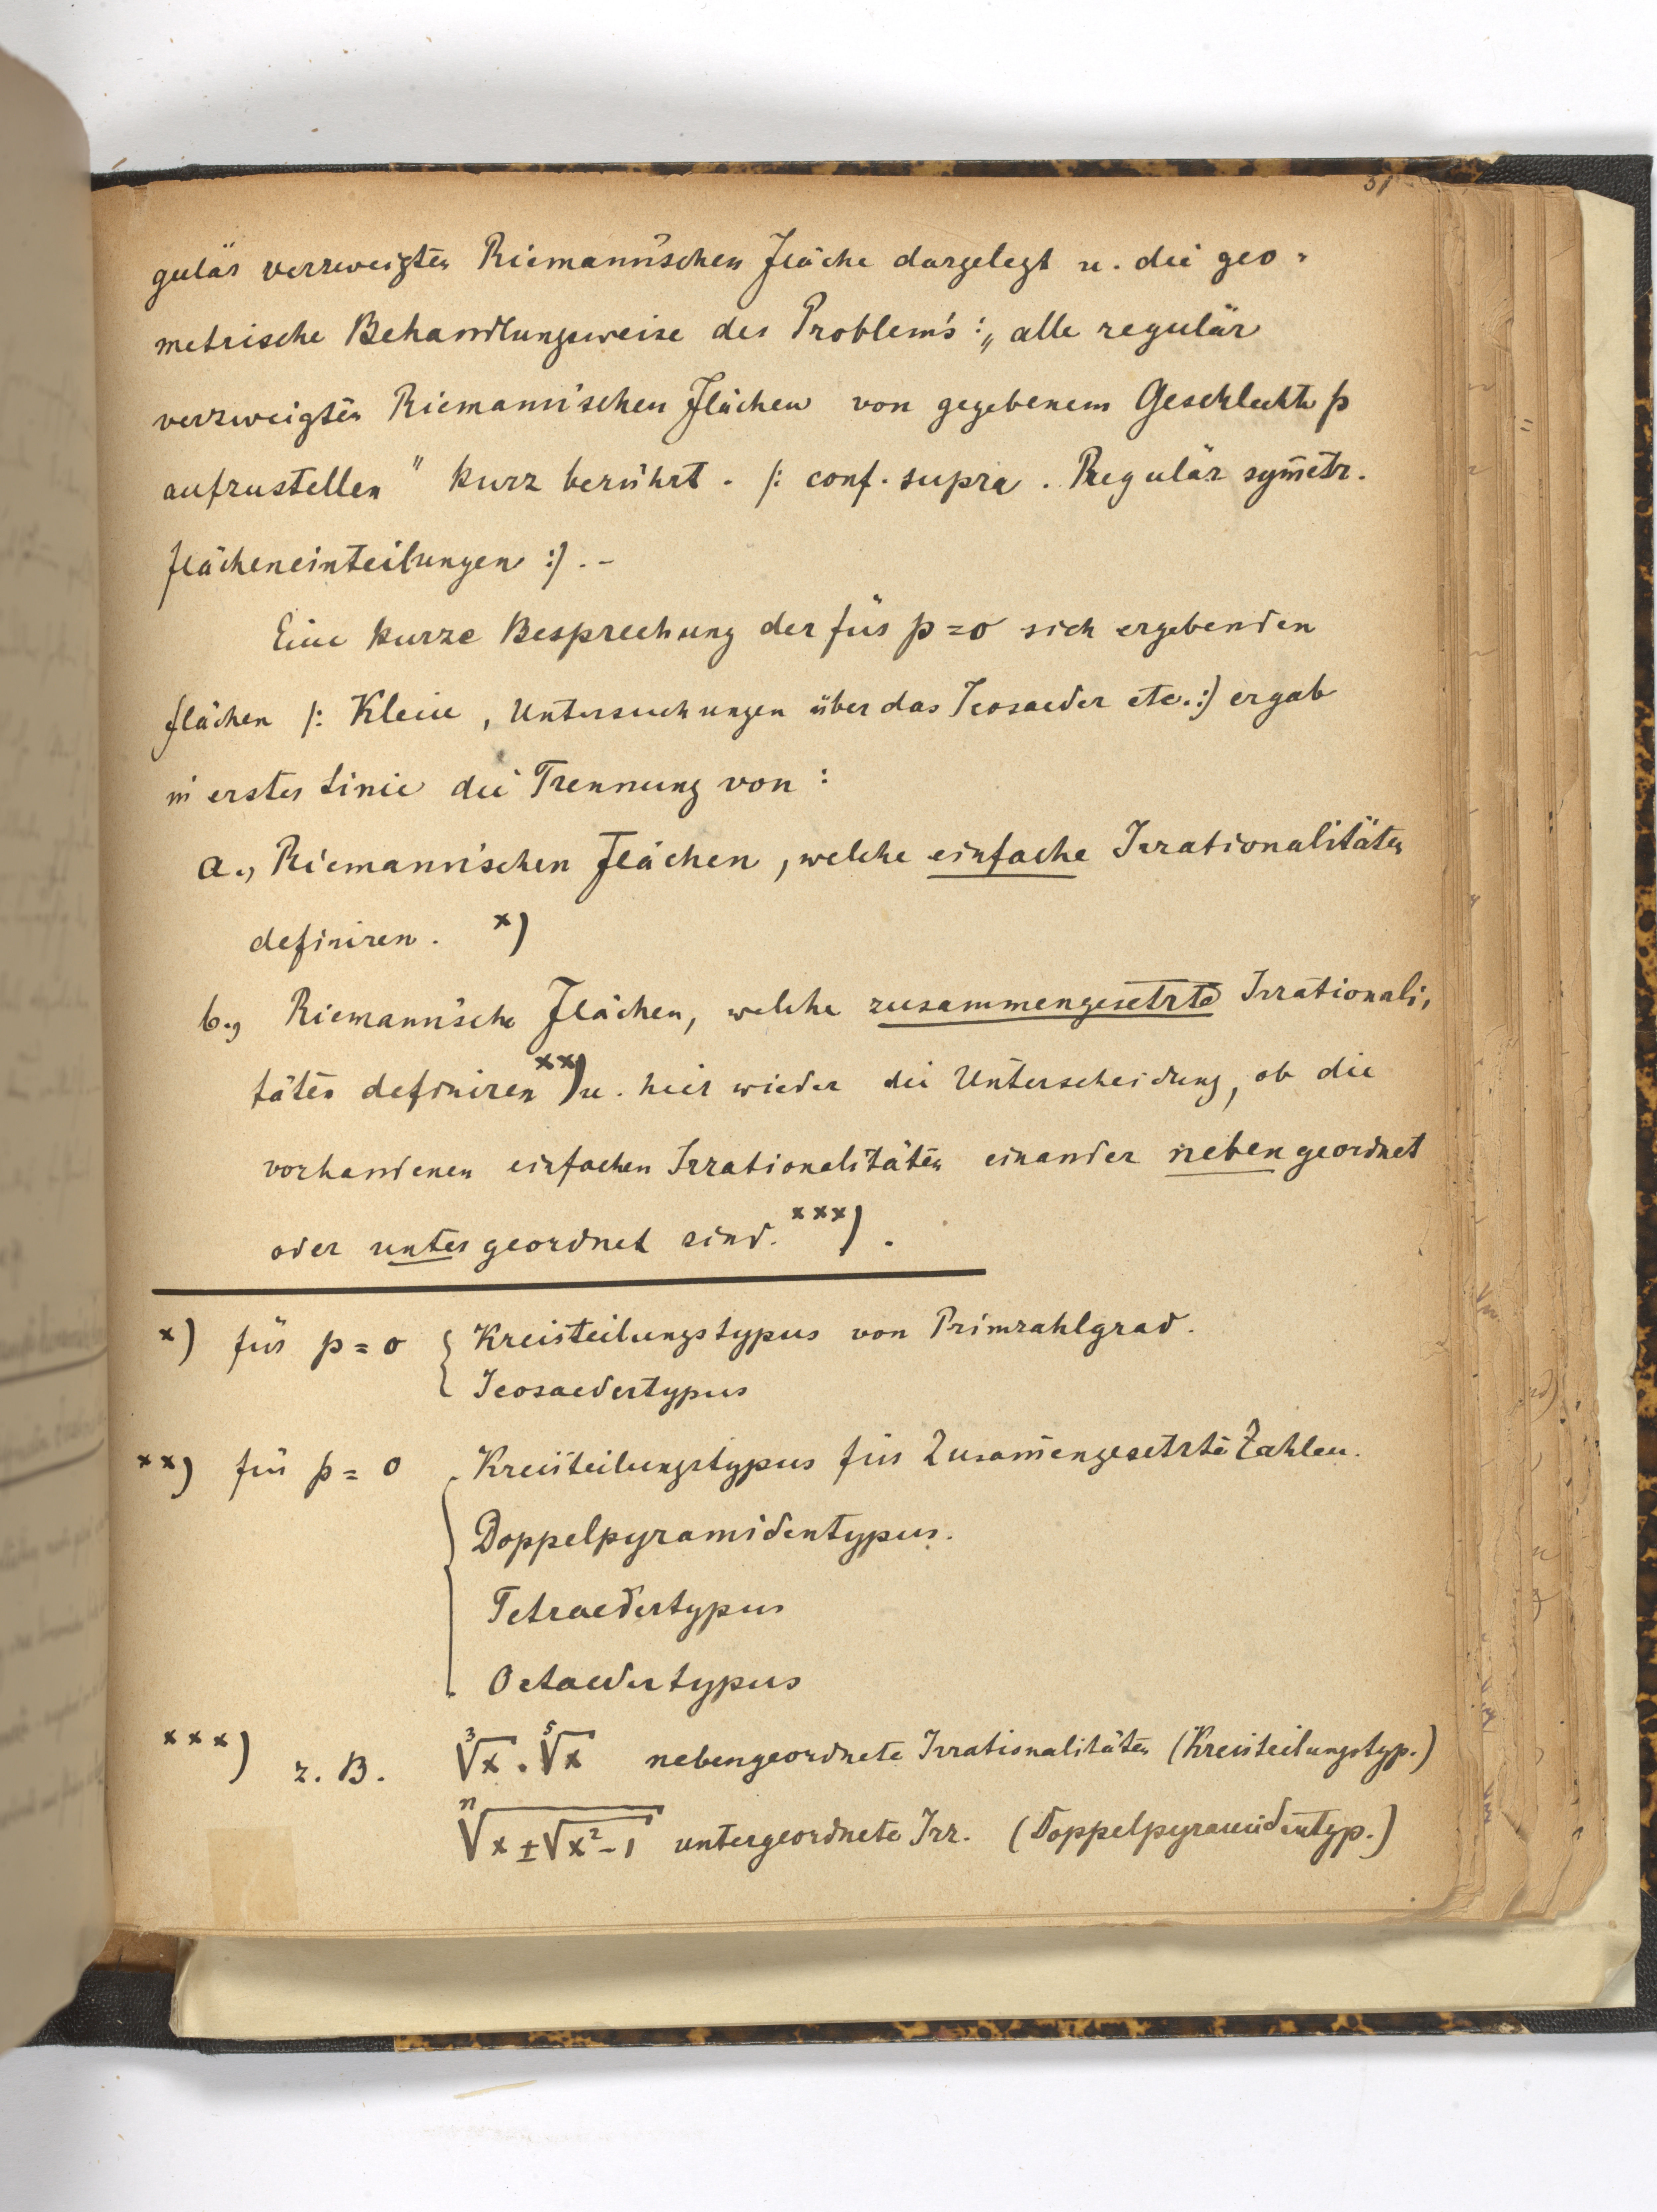 31
gulär verzweigten Riemann'schen Fläche dargelegt u. die geo-
metrische Behandlungsweise des Problem's: „alle regulär
verzweigten Riemann'schen Flächen von gegebenem Geschlechte p
aufzustellen" kurz berührt. /: conf. supra. Regulär sym̄etr.
Flächeneinteilungen :/. -
Eine kurze Besprechung der für p=0 sich ergebenden
Flächen /: Klein, Untersuchungen über das Icosaeder etc. :/ ergab
in erster Linie die Trennung von :
a., Riemann'schen Flächen, welche einfache Irrationalitäten
definiren. x)
b., Riemann'sche Flächen, welche zusammengesetzte Irrationali-
täten definiren xx) u. hier wieder die Unterscheidung, ob die
vorhandenen einfachen Irrationalitäten einander nebengeordnet
oder untergeordnet sind. xxx).
x) für p = 0 { Kreisteilungstypus von Primzahlgrad.
Icosaedertypus
xx) für p = 0 { Kreisteilungstypus für Zusam̄engesetzte Zahlen.
Doppelpyramidentypus.
Tetraedertypus
Octaedertypus
xxx) z. B. ∛x . ⁵√x nebengeordnete Irrationalitäten (Kreisteilungstyp.)
ⁿ√(x ± √(x²-1)) untergeordnete Irr. (Doppelpyramidentyp.)